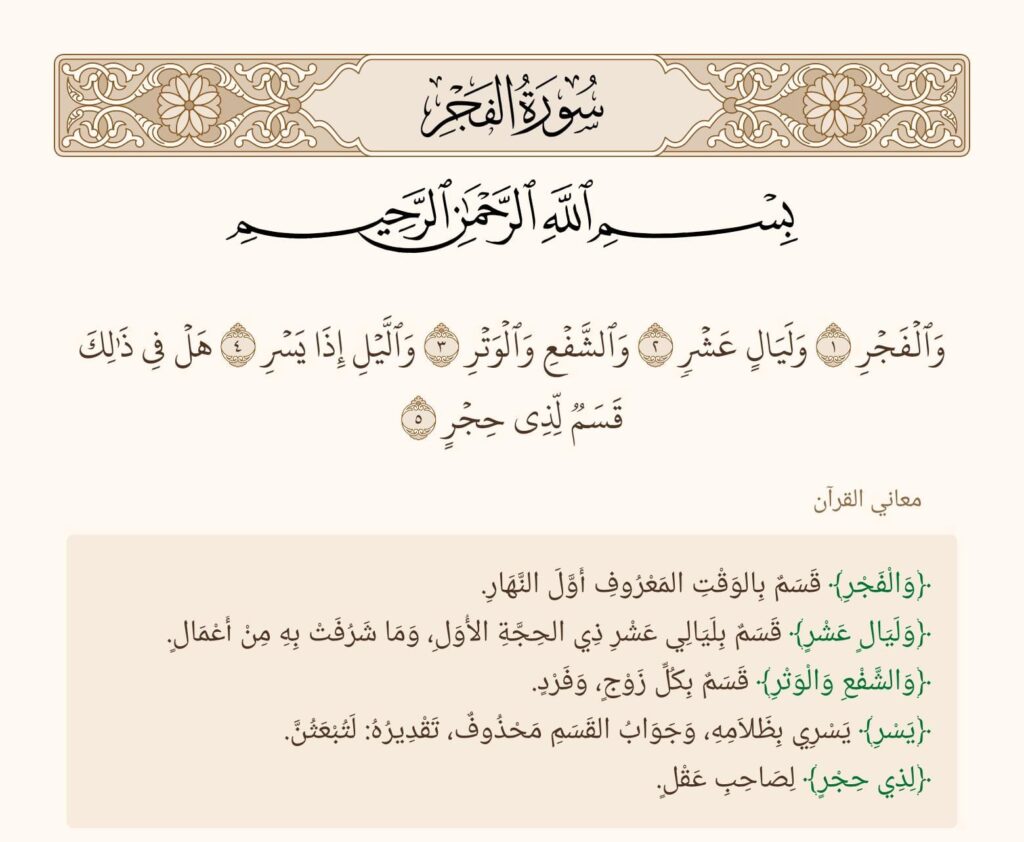 سُورَةُ الفَجْرِ
بِسْمِ ٱللَّهِ ٱلرَّحْمَٰنِ ٱلرَّحِيمِ
وَٱلْفَجْرِ ١ وَلَيَالٍ عَشْرٖ ٢ وَٱلشَّفْعِ وَٱلْوَتْرِ ٣ وَٱلَّيْلِ إِذَا يَسْرِ ٤ هَلْ فِي ذَٰلِكَ
قَسَمٞ لِّذِي حِجْرٍ ٥
معاني القرآن
﴿وَالْفَجْرِ﴾ قَسَمٌ بِالوَقْتِ المَعْرُوفِ أَوَّلَ النَّهَارِ.
﴿وَلَيَالٍ عَشْرٍ﴾ قَسَمٌ بِلَيَالِي عَشْرِ ذِي الحِجَّةِ الأُوَلِ، وَمَا شَرُفَتْ بِهِ مِنْ أَعْمَالٍ.
﴿وَالشَّفْعِ وَالْوَتْرِ﴾ قَسَمٌ بِكُلِّ زَوْجٍ، وَفَرْدٍ.
﴿يَسْرِ﴾ يَسْرِي بِظَلَامِهِ، وَجَوَابُ القَسَمِ مَحْذُوفٌ، تَقْدِيرُهُ: لَتُبْعَثُنَّ.
﴿لِذِي حِجْرٍ﴾ لِصَاحِبِ عَقْلٍ.